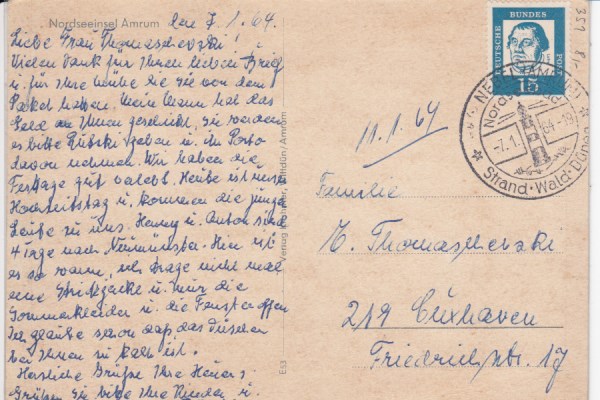 Nordseeinsel Amrum
den 7.1.64.
Liebe Frau Thomaschewski!
Vielen Dank für Ihren lieben Brief
u. für Ihre Mühe die Sie von dem
Paket haben. Mein Mann hat das
Geld an Ihnen geschickt, Sie werden
es bitte geben u. ihr Porto
davon nehmen. Wir haben die
Festtage gut verlebt. Heute ist unser
Hochzeitstag u. kommen die jungen
Leute zu uns. Henny u. Anton sind
4 Tage nach Neumünster. Hier ist
es so warm, ich trage nicht mal
eine Strickjacke u. nur die
Sommerkleider u. die Fenster offen
Ich glaube schon daß das Duschen
bei Ihnen zu kalt ist.
Herzliche Grüße Ihre
Grüßen Sie bitte Ihre Kinder u.
Verlag
Nebel/Amrum
E53
DEUTSCHE BUNDESPOST
15
NEBEL (AMRUM)
Nordseebad
-7.1. 64-19
Strand·Wald·Dünen
351
11.1.64
Familie
K. Thomaschewski
219 Cuxhaven
Friedrichstr. 17